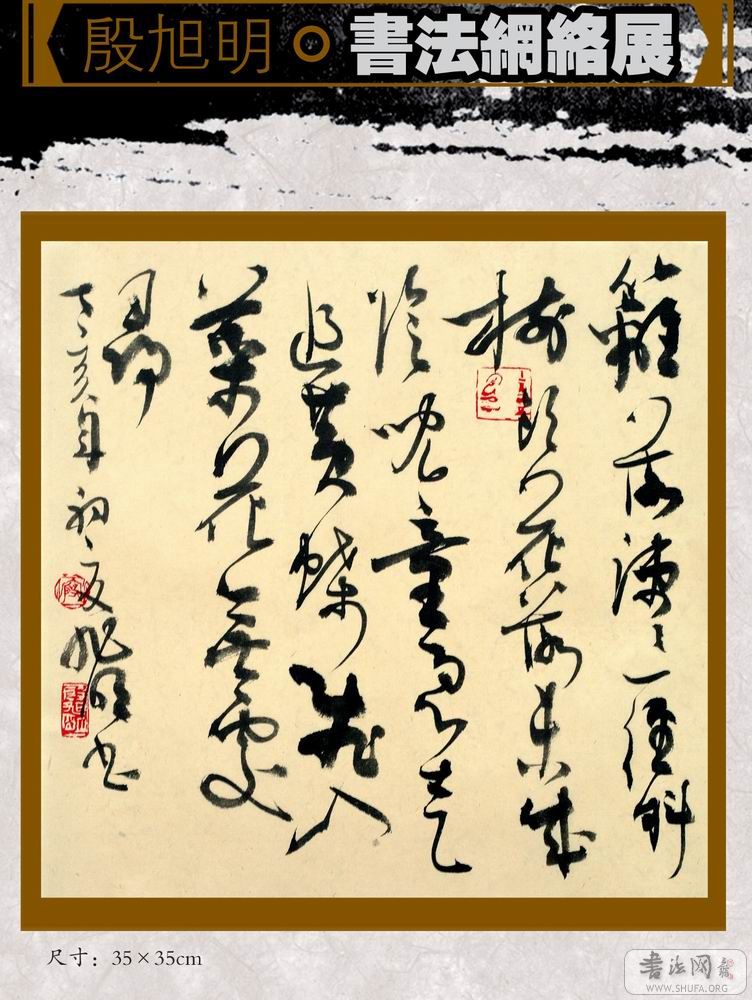 殷旭明 書法網絡展
籬落疎疎一徑
樹頭花落未成
陰兒童急走
追黃蝶飛入
菜花無處
尋
丁亥年初夏旭明书
尺寸：35×35cm
書法网
WWW.SHUFA.ORG